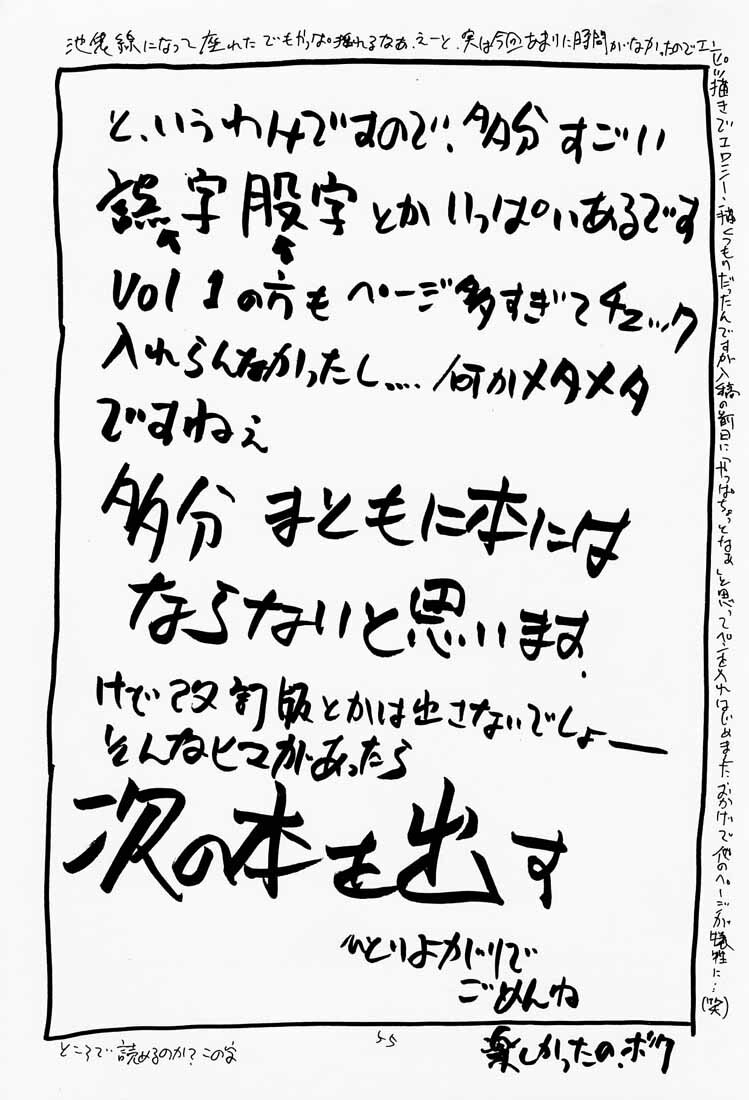 池袋線になって座れた でもやっぱ揺れるなあ、えーと、実は今回あまりに時間がなかったのでエンピツ描きでエロシーン描くつもりだったんですが入稿の前日に「やっぱちょっとなあ」と思ってペンを入れはじめました おかげで他のページが犠牲に…(笑)
と、いうわけですので、多分 すごい
誤字 股字 とか いっぱいあるです
Vol 1 の方も ページ多すぎてチェック
入れらんなかったし…. 何かメタメタ
ですねぇ
多分 まともに本には
ならないと思います.
けど改訂版とかは出さないでしょー
そんなヒマがあったら
次の本を出す
ひとりよがりで
ごめんね
楽しかったの.ボク
55
ところで読めるのか?この字